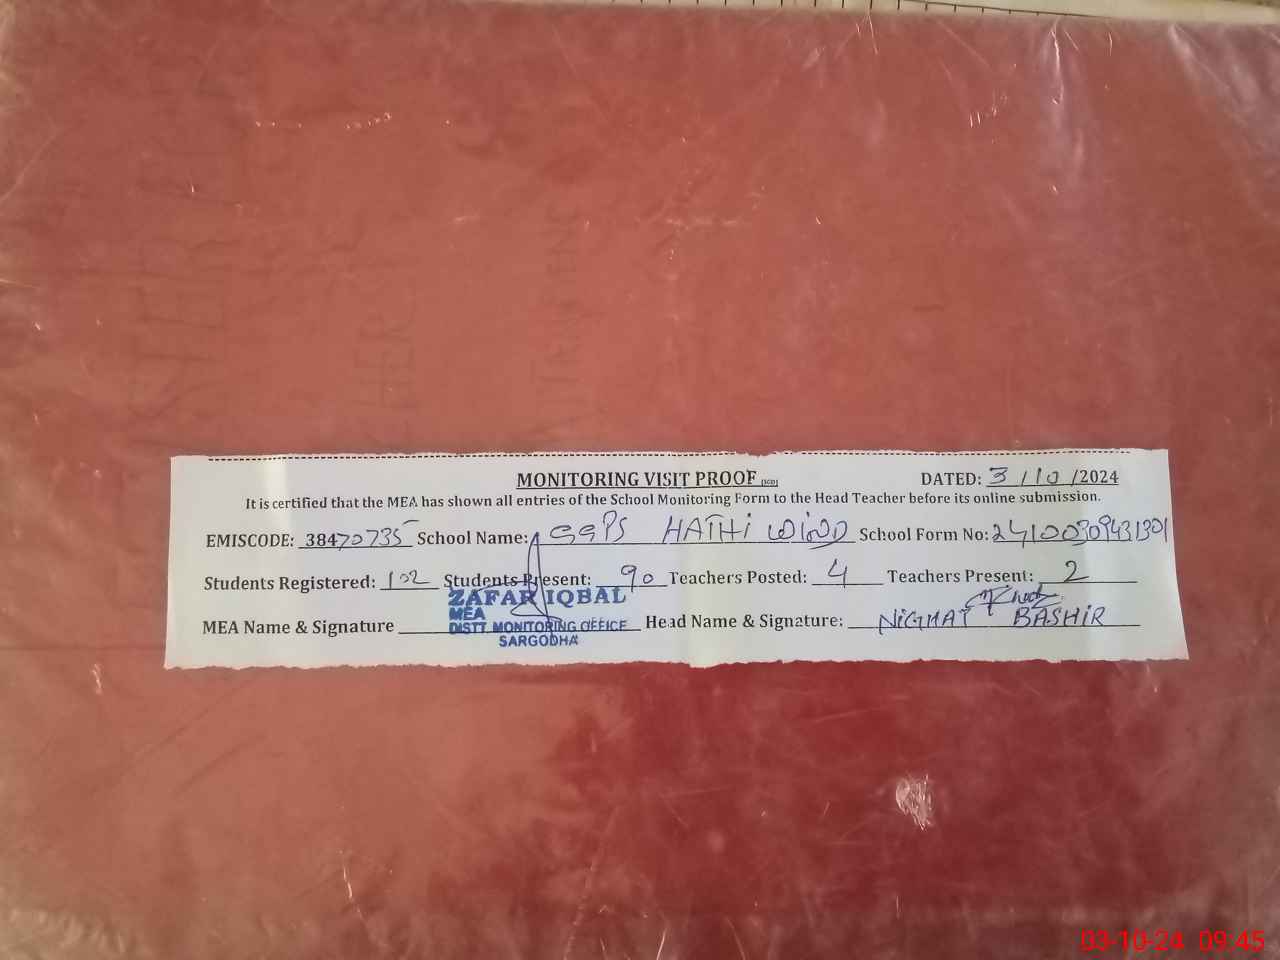 MONITORING VISIT PROOF (SCD) DATED: 3/10/2024
It is certified that the MEA has shown all entries of the School Monitoring Form to the Head Teacher before its online submission.
EMISCODE: 38470735 School Name: GGPS HATHI WIND School Form No: 24100309431301
Students Registered: 102 Students Present: 90 Teachers Posted: 4 Teachers Present: 2
ZAFAR IQBAL
MEA
MEA Name & Signature DISTT. MONITORING OFFICE Head Name & Signature: NIGHAT BASHIR
SARGODHA
03-10-24 09:45